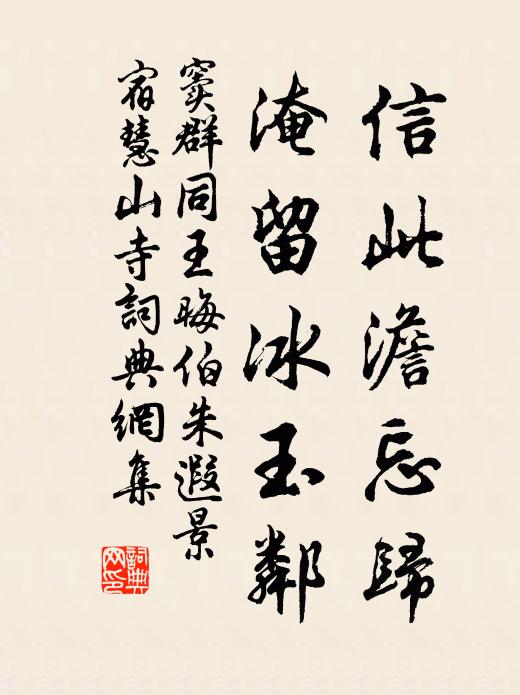 信此澹忘歸
淹留冰玉鄰
窦群同王晦伯朱遐景
宿慧山寺詞典網集
詞典
网印